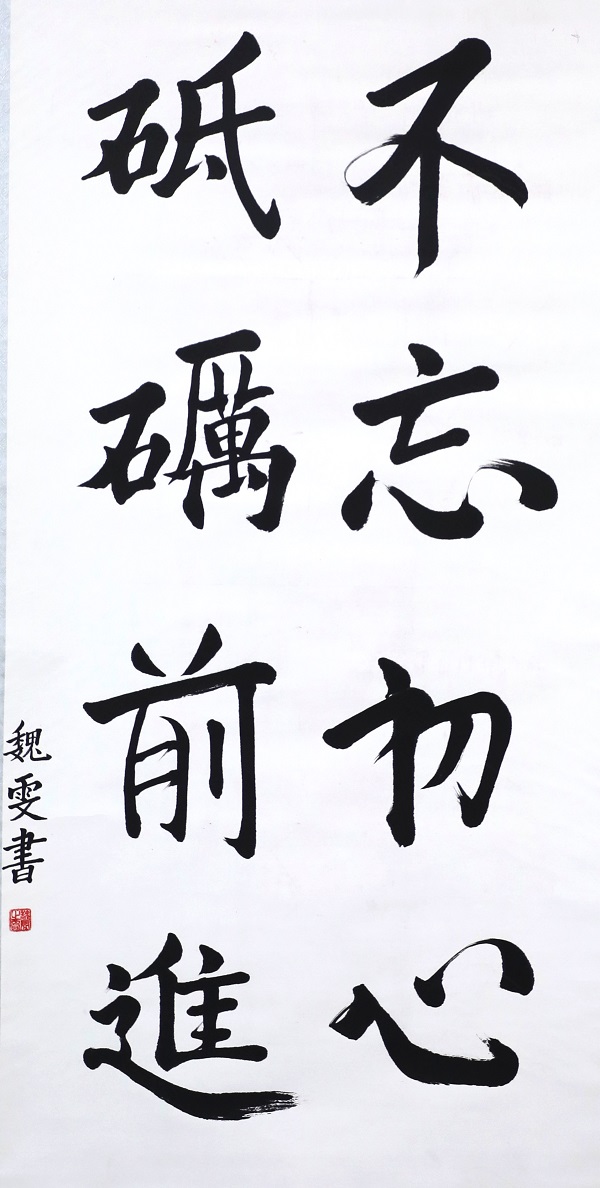 不忘初心
砥礪前進
魏雯書